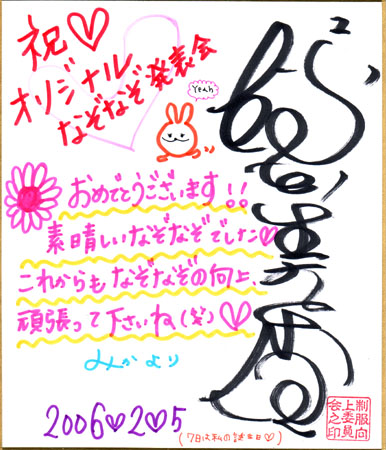 祝♡
オリジナル
なぞなぞ発表会
Yeah
おめでとうございます!!
素晴しいなぞなぞでした♡
これからもなぞなぞの向上、
頑張って下さいね(笑)♡
みかより
2006♡2♡5
(7日は私の誕生日♡)
制服向
上委員
会之印